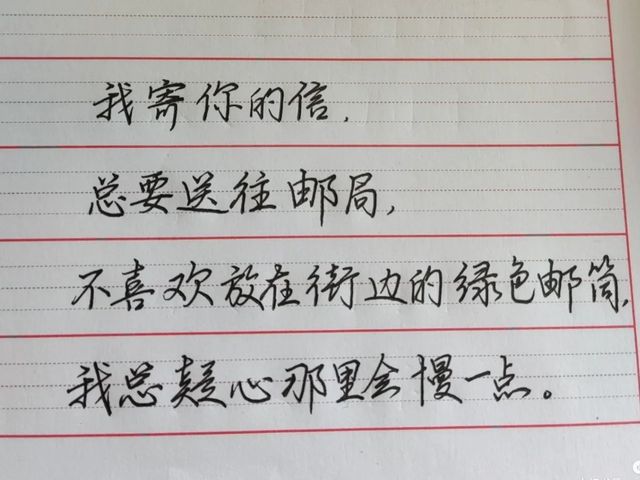 我寄你的信,
总要送往邮局,
不喜欢放在街边的绿色邮筒,
我总疑心那里会慢一点。